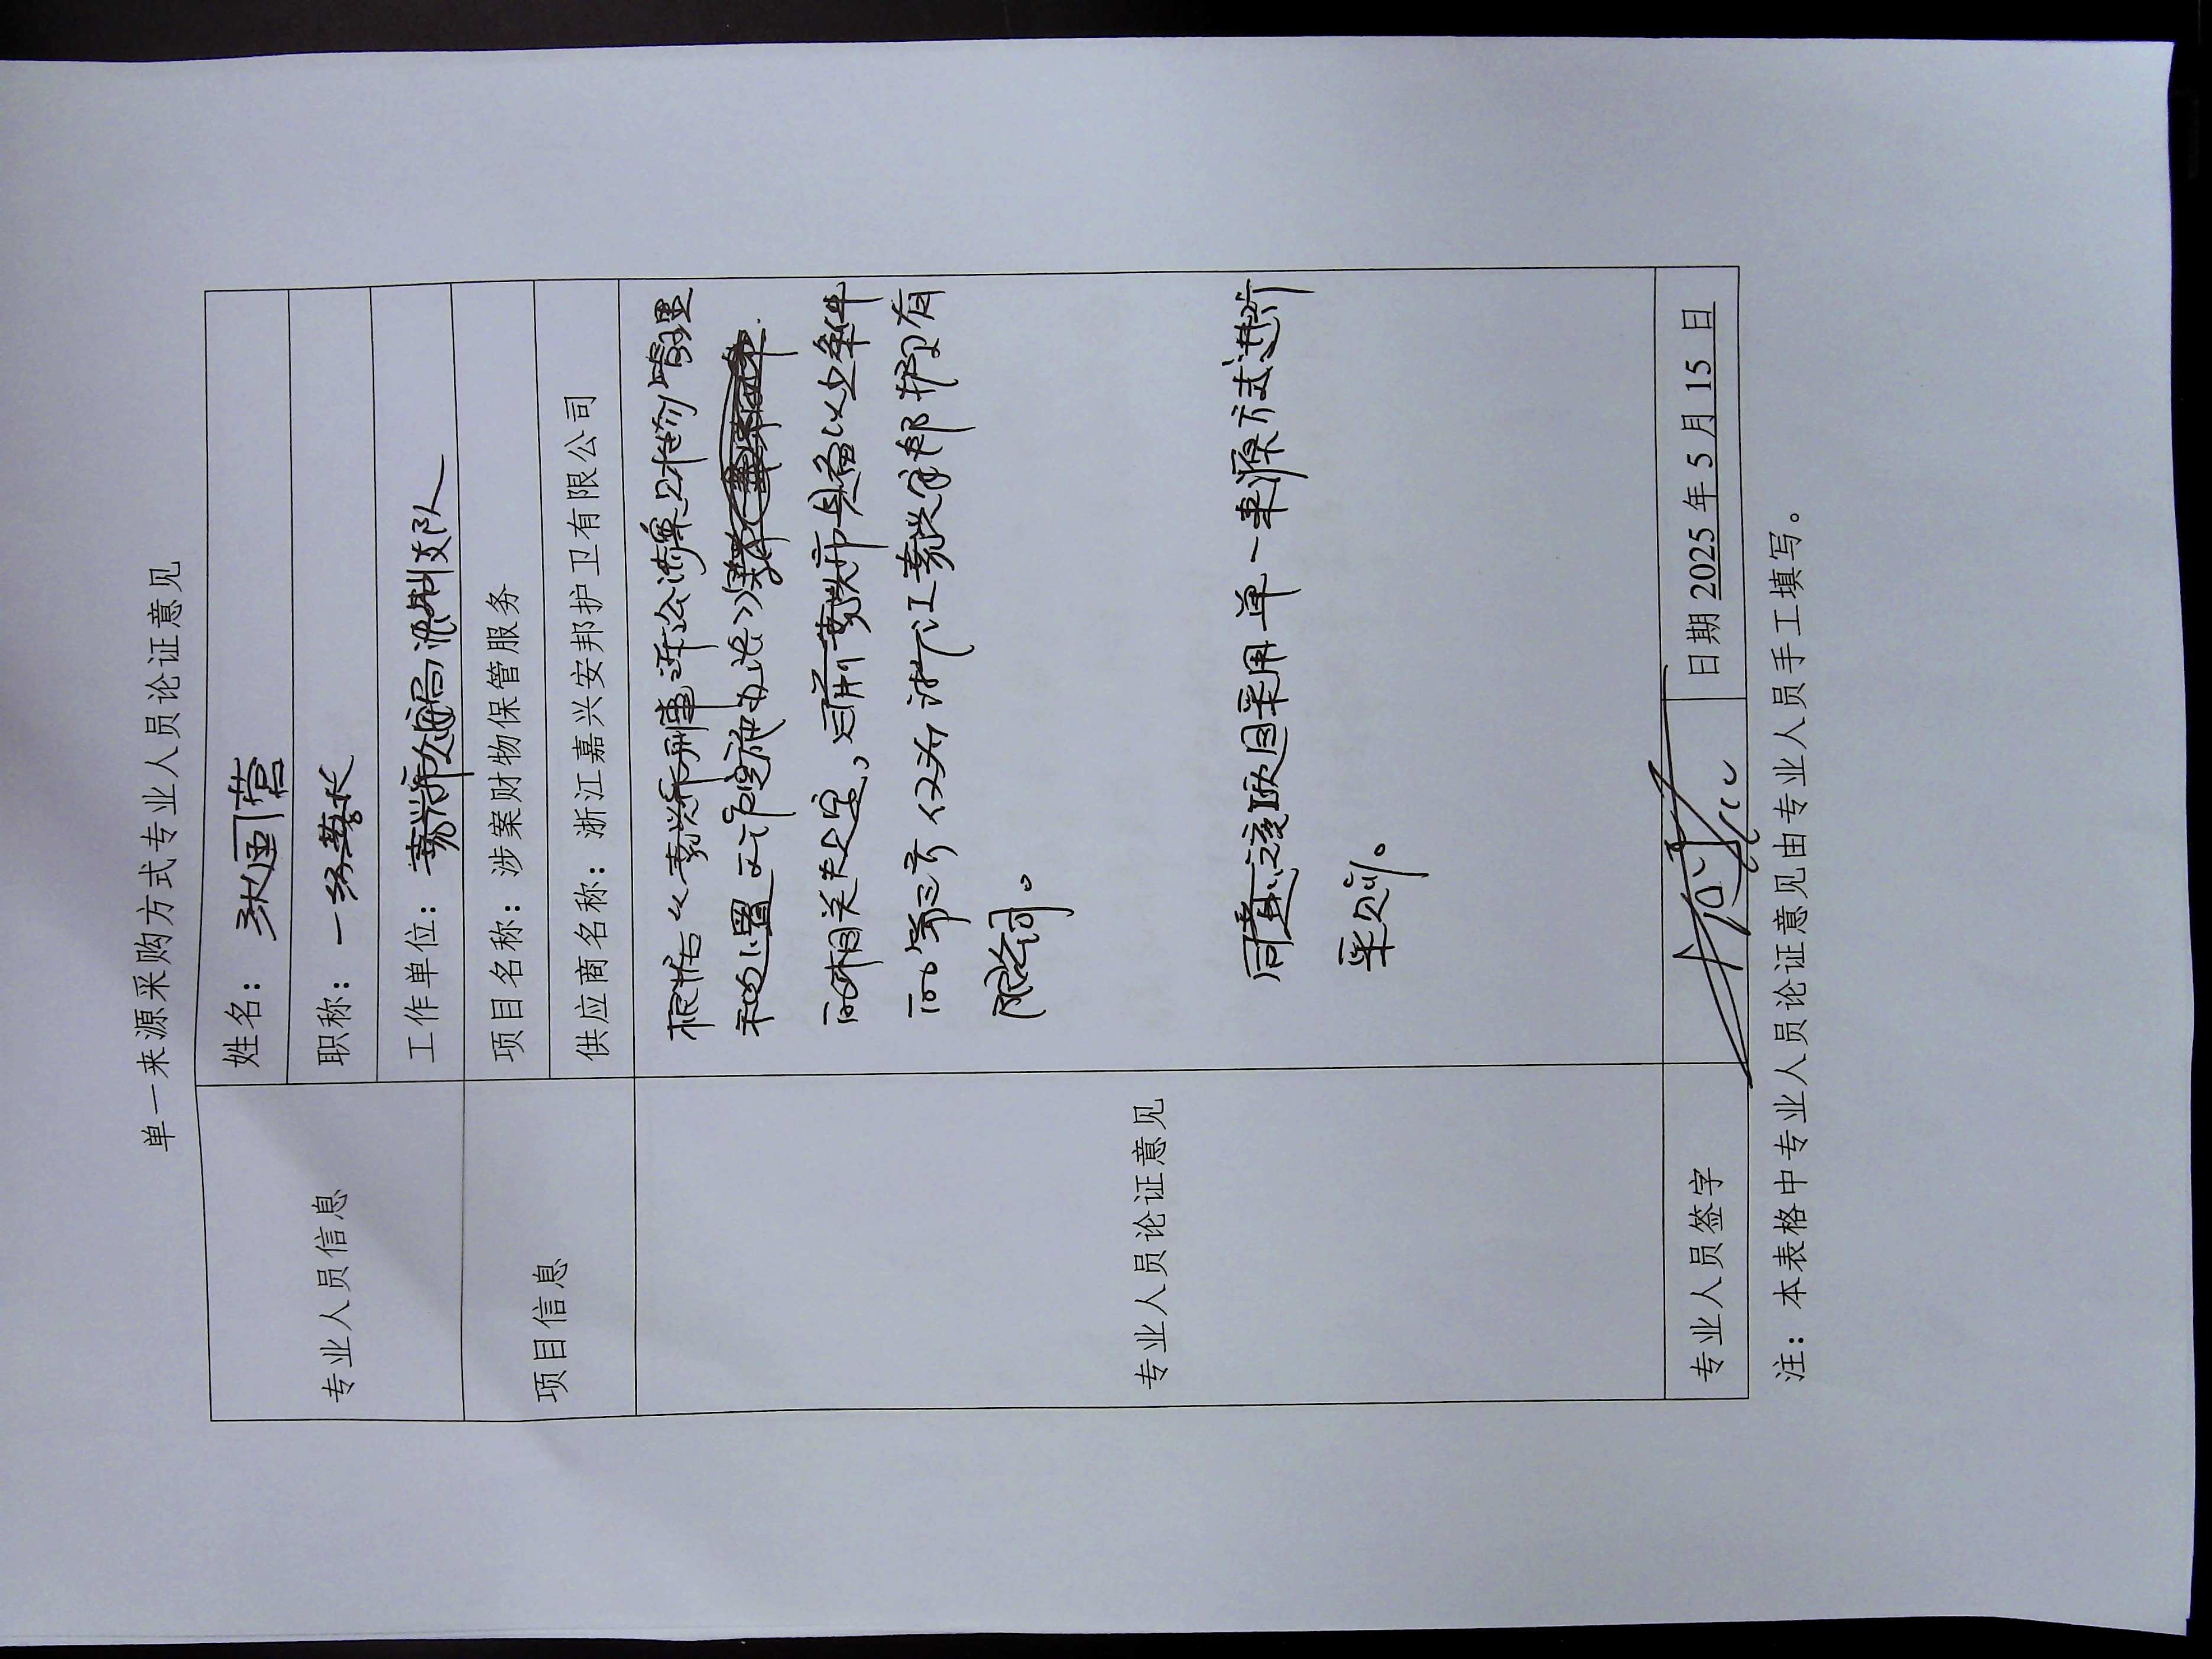 单一来源采购方式专业人员论证意见
专业人员信息
姓名：张国营
职称：一级警长
工作单位：嘉兴市公安局 支队
项目信息
项目名称：涉案财物保管服务
供应商名称：浙江嘉兴安邦护卫有限公司
专业人员论证意见
根据《嘉兴市刑事诉讼涉案财物管理
和处置 实施办法》
的相关规定，目前嘉兴市具备以上条件
的第三方仅为浙江嘉兴安邦护卫有
限公司。
同意该项目采用单一来源方式进行
采购。
专业人员签字
日期 2025 年 5 月 15 日
注：本表格中专业人员论证意见由专业人员手工填写。